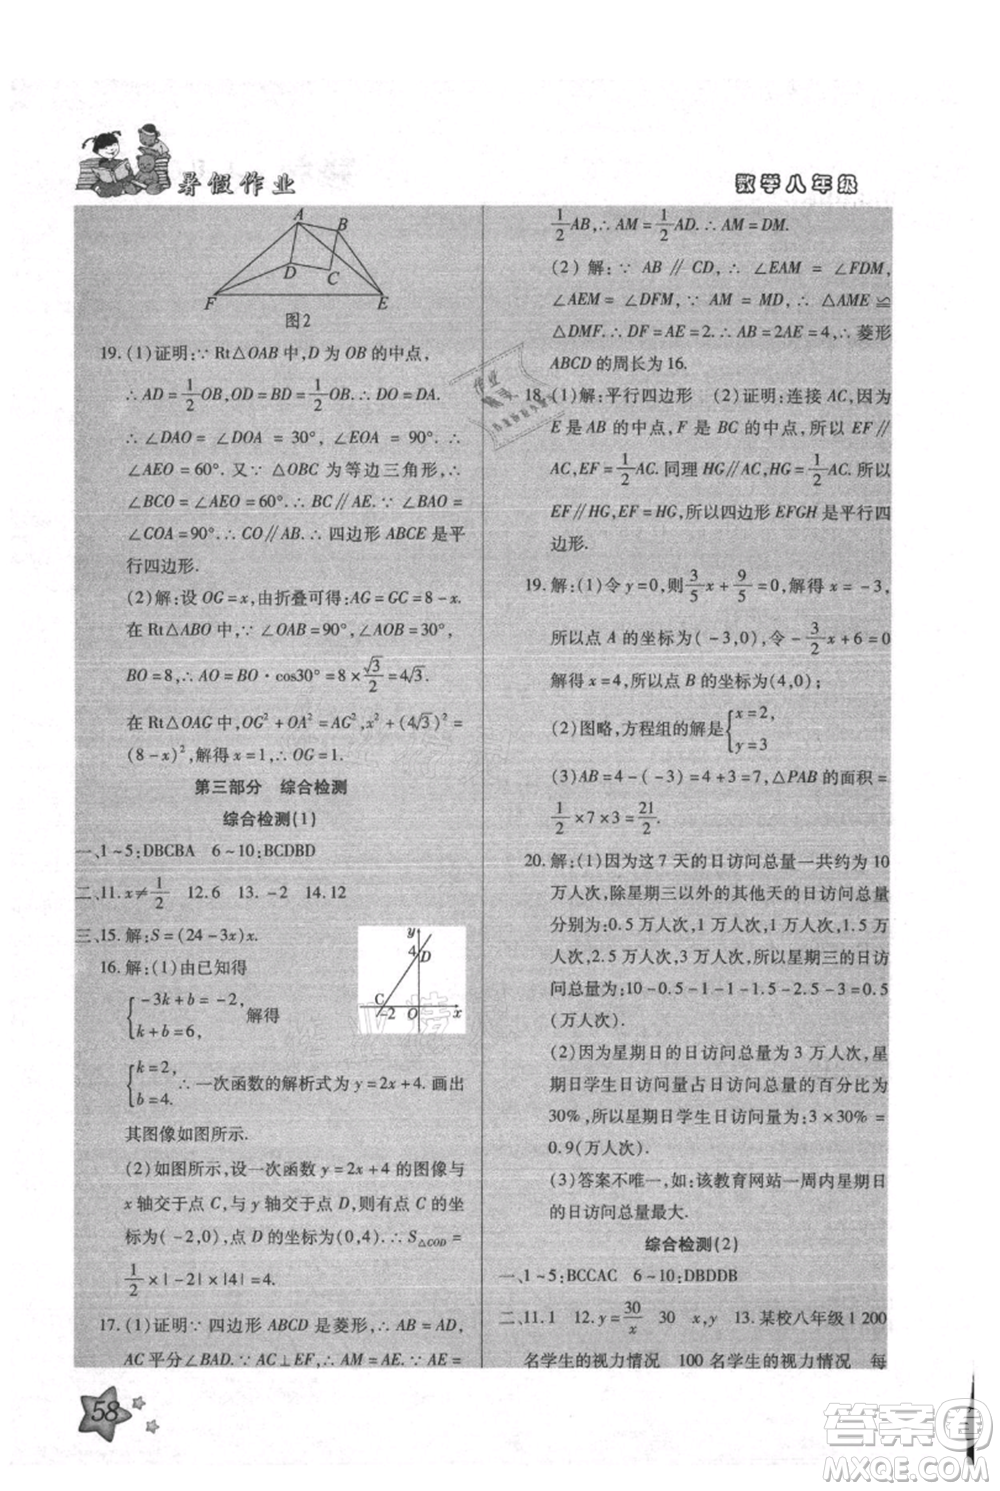 暑假作业
数学八年级
A
B
D
C
F
E
图2
19.(1)证明:∵Rt△OAB中,D为OB的中点,
∴AD=1/2OB,OD=1/2OB.∴DO=DA.
∴∠DAO=∠DOA=30°,∠EOA=90°.
∴∠AEO=60°.又∵△OBC为等边三角形,∴
∠BCO=∠AEO=60°.∴BC∥AE.∵∠BAO=
∠COA=90°.∴CO∥AB.∴四边形ABCE是平
行四边形.
(2)解:设OG=x,由折叠可得:AG=GC=8-x.
在Rt△ABO中,∵∠OAB=90°,∠AOB=30°,
BO=8,∴AO=BO·cos30°=8×√3/2=4√3.
在Rt△OAG中,OG²+OA²=AG²,x²+(4√3)²=
(8-x)²,解得x=1,∴OG=1.
第三部分 综合检测
综合检测(1)
一、1~5:DBCBA 6~10:BCDBD
二、11.x≠1/2 12.6 13.-2 14.12
三、15.解:S=(24-3x)x.
16.解:(1)由已知得
{-3k+b=-2,
k+b=6, 解得
{k=2,
b=4. ∴一次函数的解析式为y=2x+4.画出
其图像如图所示.
y
4
D
C
-2
O
x
(2)如图所示,设一次函数y=2x+4的图像与
x轴交于点C,与y轴交于点D,则有点C的坐
标为(-2,0),点D的坐标为(0,4).∴S△COD=
1/2×|-2|×|4|=4.
17.(1)证明∵四边形ABCD是菱形,∴AB=AD,
AC平分∠BAD.∵AC⊥EF,∴AM=AE.∵AE=
1/2AB,∴AM=1/2AD.∴AM=DM.
(2)解:∵AB∥CD,∴∠EAM=∠FDM,
∠AEM=∠DFM,∵AM=MD,∴△AME≌
△DMF.∴DF=AE=2.∴AB=2AE=4,∴菱形
ABCD的周长为16.
18.(1)解:平行四边形 (2)证明:连接AC,因为
E是AB的中点,F是BC的中点,所以EF∥
AC,EF=1/2AC.同理HG∥AC,HG=1/2AC.所以
EF∥HG,EF=HG,所以四边形EFGH是平行四
边形.
19.解:(1)令y=0,则3/5x+9/5=0,解得x=-3,
所以点A的坐标为(-3,0),令-3/2x+6=0
解得x=4,所以点B的坐标为(4,0);
(2)图略,方程组的解是{x=2,
y=3
(3)AB=4-(-3)=7,△PAB的面积=
1/2×7×3=21/2.
20.解:(1)因为这7天的日访问总量一共约为10
万人次,除星期三以外的其他天的日访问总量
分别为:0.5万人次、1万人次、1万人次、1.5万
人次、2.5万人次、3万人次,所以星期三的日访
问总量为:10-0.5-1-1-1.5-2.5-3=0.5
(万人次).
(2)因为星期日的日访问总量为3万人次,星
期日学生日访问量占日访问总量的百分比为
30%,所以星期日学生日访问总量为:3×30%=
0.9(万人次).
(3)答案不唯一,如:该教育网站一周内星期日
的日访问总量最大.
综合检测(2)
一、1~5:BCCAC 6~10:DBDDB
二、11.1 12.y=30/x 30 x,y 13.某校八年级1 200
名学生的视力情况 100名学生的视力情况 每
58
答案圈
MXQE.COM